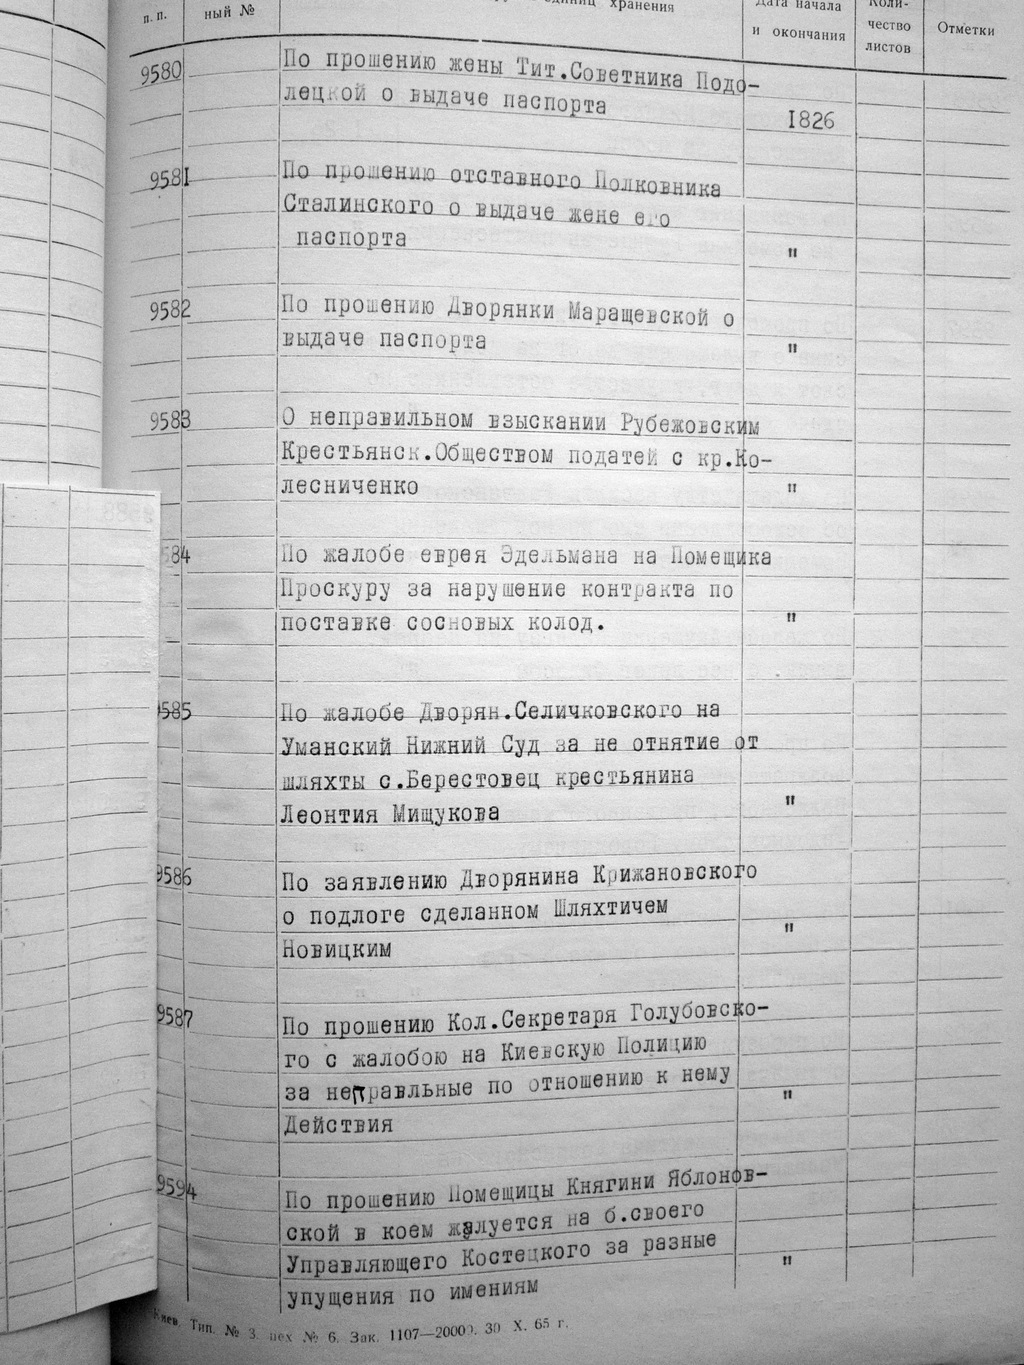 п. п.
ный №
единиц хранения
Дата начала
и окончания
Коли-
чество
листов
Отметки
9580
По прошению жены Тит.Советника Подо-
лецкой о выдаче паспорта
1826
9581
По прошению отставного Полковника
Сталинского о выдаче жене его
паспорта
"
9582
По прошению Дворянки Маращевской о
выдаче паспорта
"
9583
О неправильном взыскании Рубежовским
Крестьянск.Обществом податей с кр.Ко-
лесниченко
"
584
По жалобе еврея Эдельмана на Помещика
Проскуру за нарушение контракта по
поставке сосновых колод.
"
9585
По жалобе Дворян.Селичковского на
Уманский Нижний Суд за не отнятие от
шляхты с.Берестовец крестьянина
Леонтия Мищукова
"
9586
По заявлению Дворянина Крижановского
о подлоге сделанном Шляхтичем
Новицким
"
9587
По прошению Кол.Секретаря Голубовско-
го с жалобою на Киевскую Полицию
за неправльные по отношению к нему
Действия
"
9594
По прошению Помещицы Княгини Яблонов-
ской в коем жалуется на б.своего
Управляющего Костецкого за разные
упущения по имениям
"
Киев. Тип. № 3. цех № 6. Зак. 1107—20000. 30 X. 65 г.